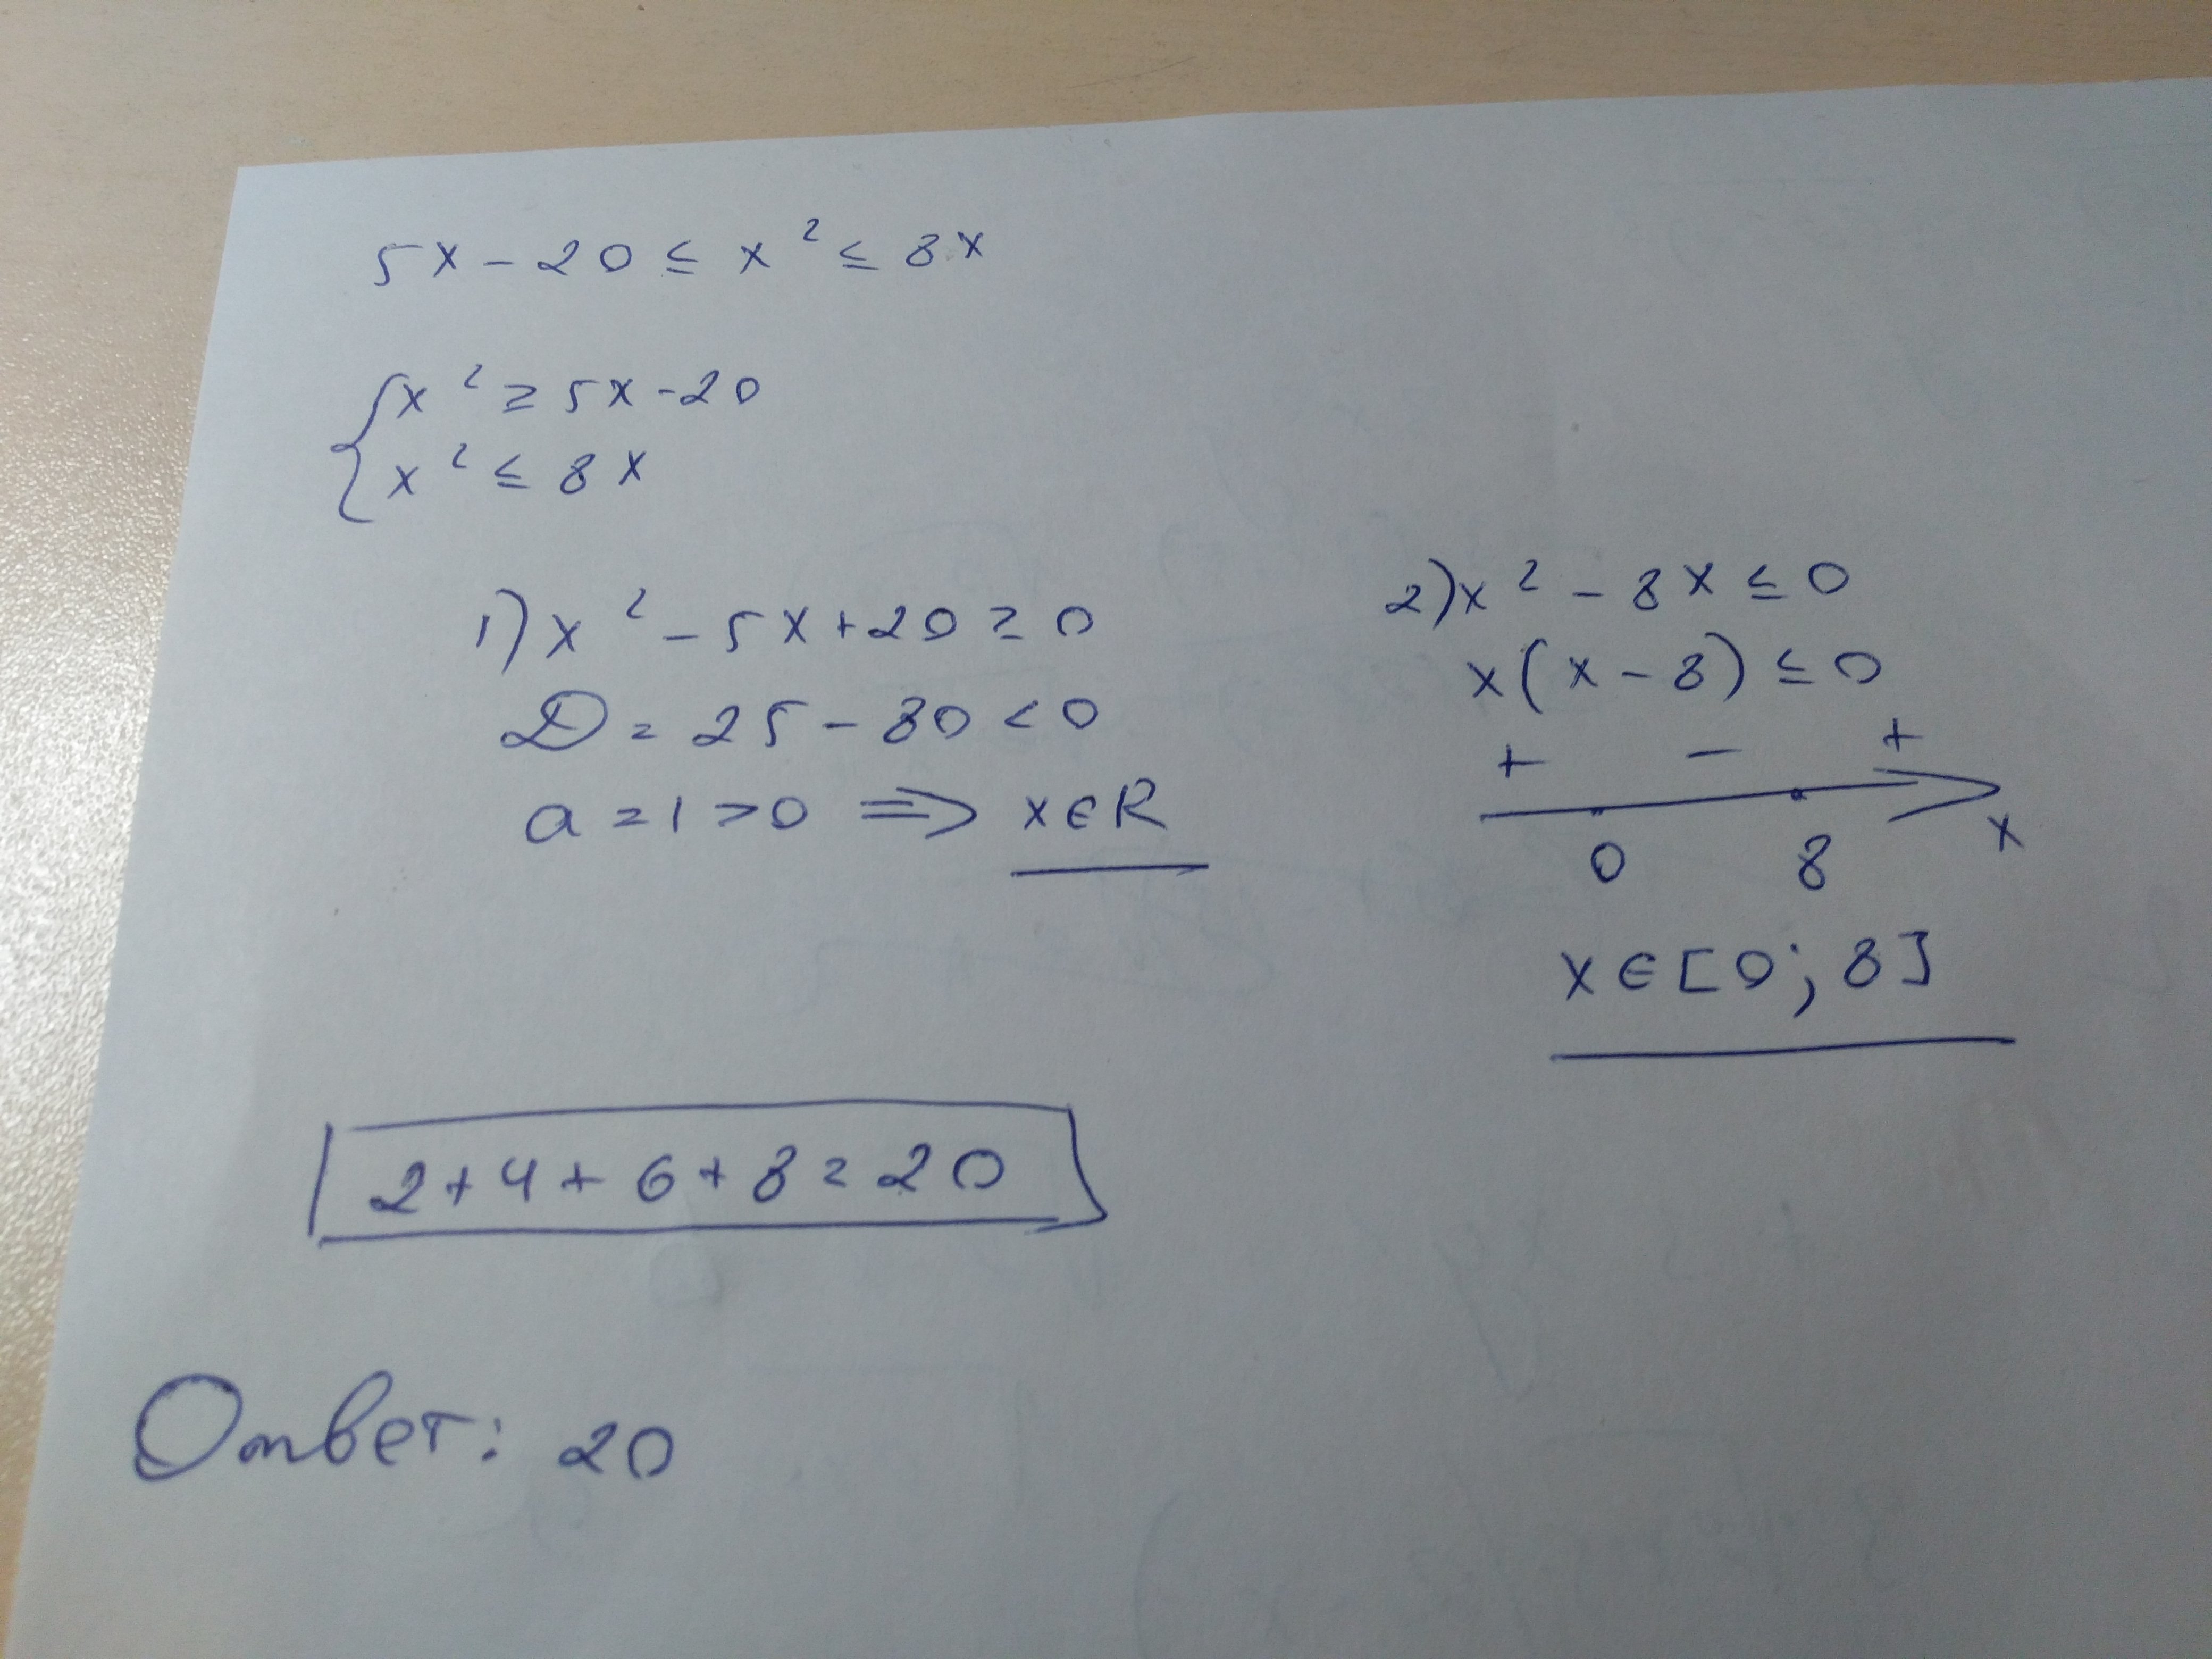 5x - 20 ≤ x² ≤ 8x
{x² ≥ 5x - 20
x² ≤ 8x
1) x² - 5x + 20 ≥ 0
D = 25 - 80 < 0
a = 1 > 0 ⇒ x ∈ R
2) x² - 8x ≤ 0
x(x - 8) ≤ 0
+ - +
0 8 x
x ∈ [0; 8]
2 + 4 + 6 + 8 = 20
Ответ: 20